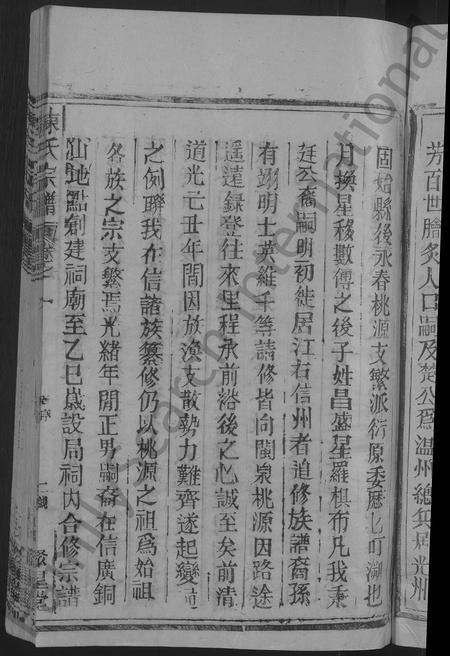 芳百世膾炙人口嗣及楚公爲溫州總兵居光州
固始縣後永春桃源支繁派衍原委歷七可溯也
月換星移數傳之後子姓昌盛星羅棋布凡我秉
廷公裔嗣明初徙居江右信州者追修族譜裔孫
有翊明士英維千等請修皆向閩泉桃源因路途
遥遠錄登往來里程承前裕後之心誠至矣前清
道光丑年間因族渙支散勢力難齊遂起變
之例聨我在信諸族纂修仍以桃源之祖爲始祖
各族之宗支繁焉光緒年間正男嗣裔在信廣銅
山地點創建祠廟至乙巳歲設局祠内合修宗譜
陳氏宗譜 卷之一
familysearch international